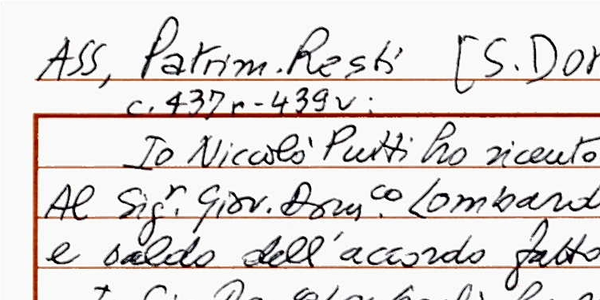 ASS, Patrim. Resti [S. Dor
c. 437r-439v:
Io Niccolò Putti ho riceuto
Al Sigr. Giov. Domco. Lombard
e saldo dell'accordo fatto